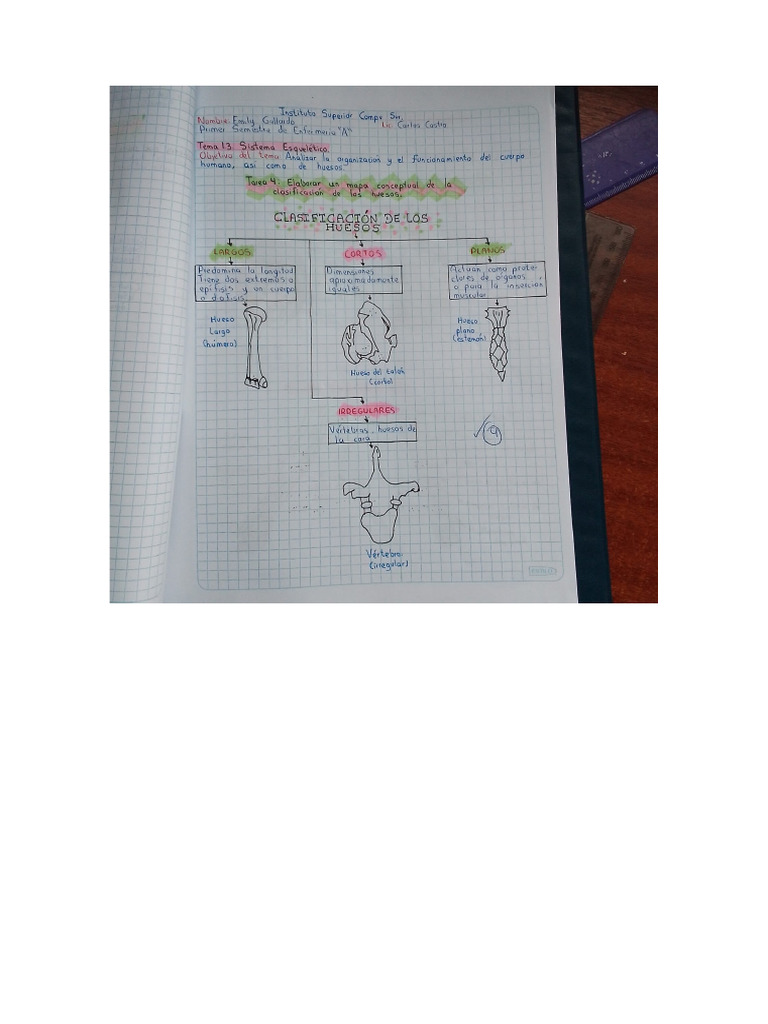 Instituto Superior Compu Sur
Nombre: Emily Gallardo Lic. Carlos Castro
Primer Semestre de Enfermeria "A"
Tema 1.3. Sistema Esquelético.
Objetivo del tema: Analizar la organizacion y el funcionamiento del cuerpo
humano, asi como de huesos.
Tarea 4: Elaborar un mapa conceptual de la
clasificacion de los huesos.
CLASIFICACIÓN DE LOS
HUESOS
LARGOS
CORTOS
PLANOS
Predomina la longitud
Tiene dos extremos o
epifisis y un cuerpo
o diafisis
Dimensiones
aproximadamente
iguales
Actuan como protec
ctores de órganos
o para la inserción
muscular
Hueso
Largo
(húmero)
Hueso del talón
(corto)
Hueso
plano
(esternón)
IRREGULARES
Vértebras, huesos de
la cara
9
Vértebra
(irregular)